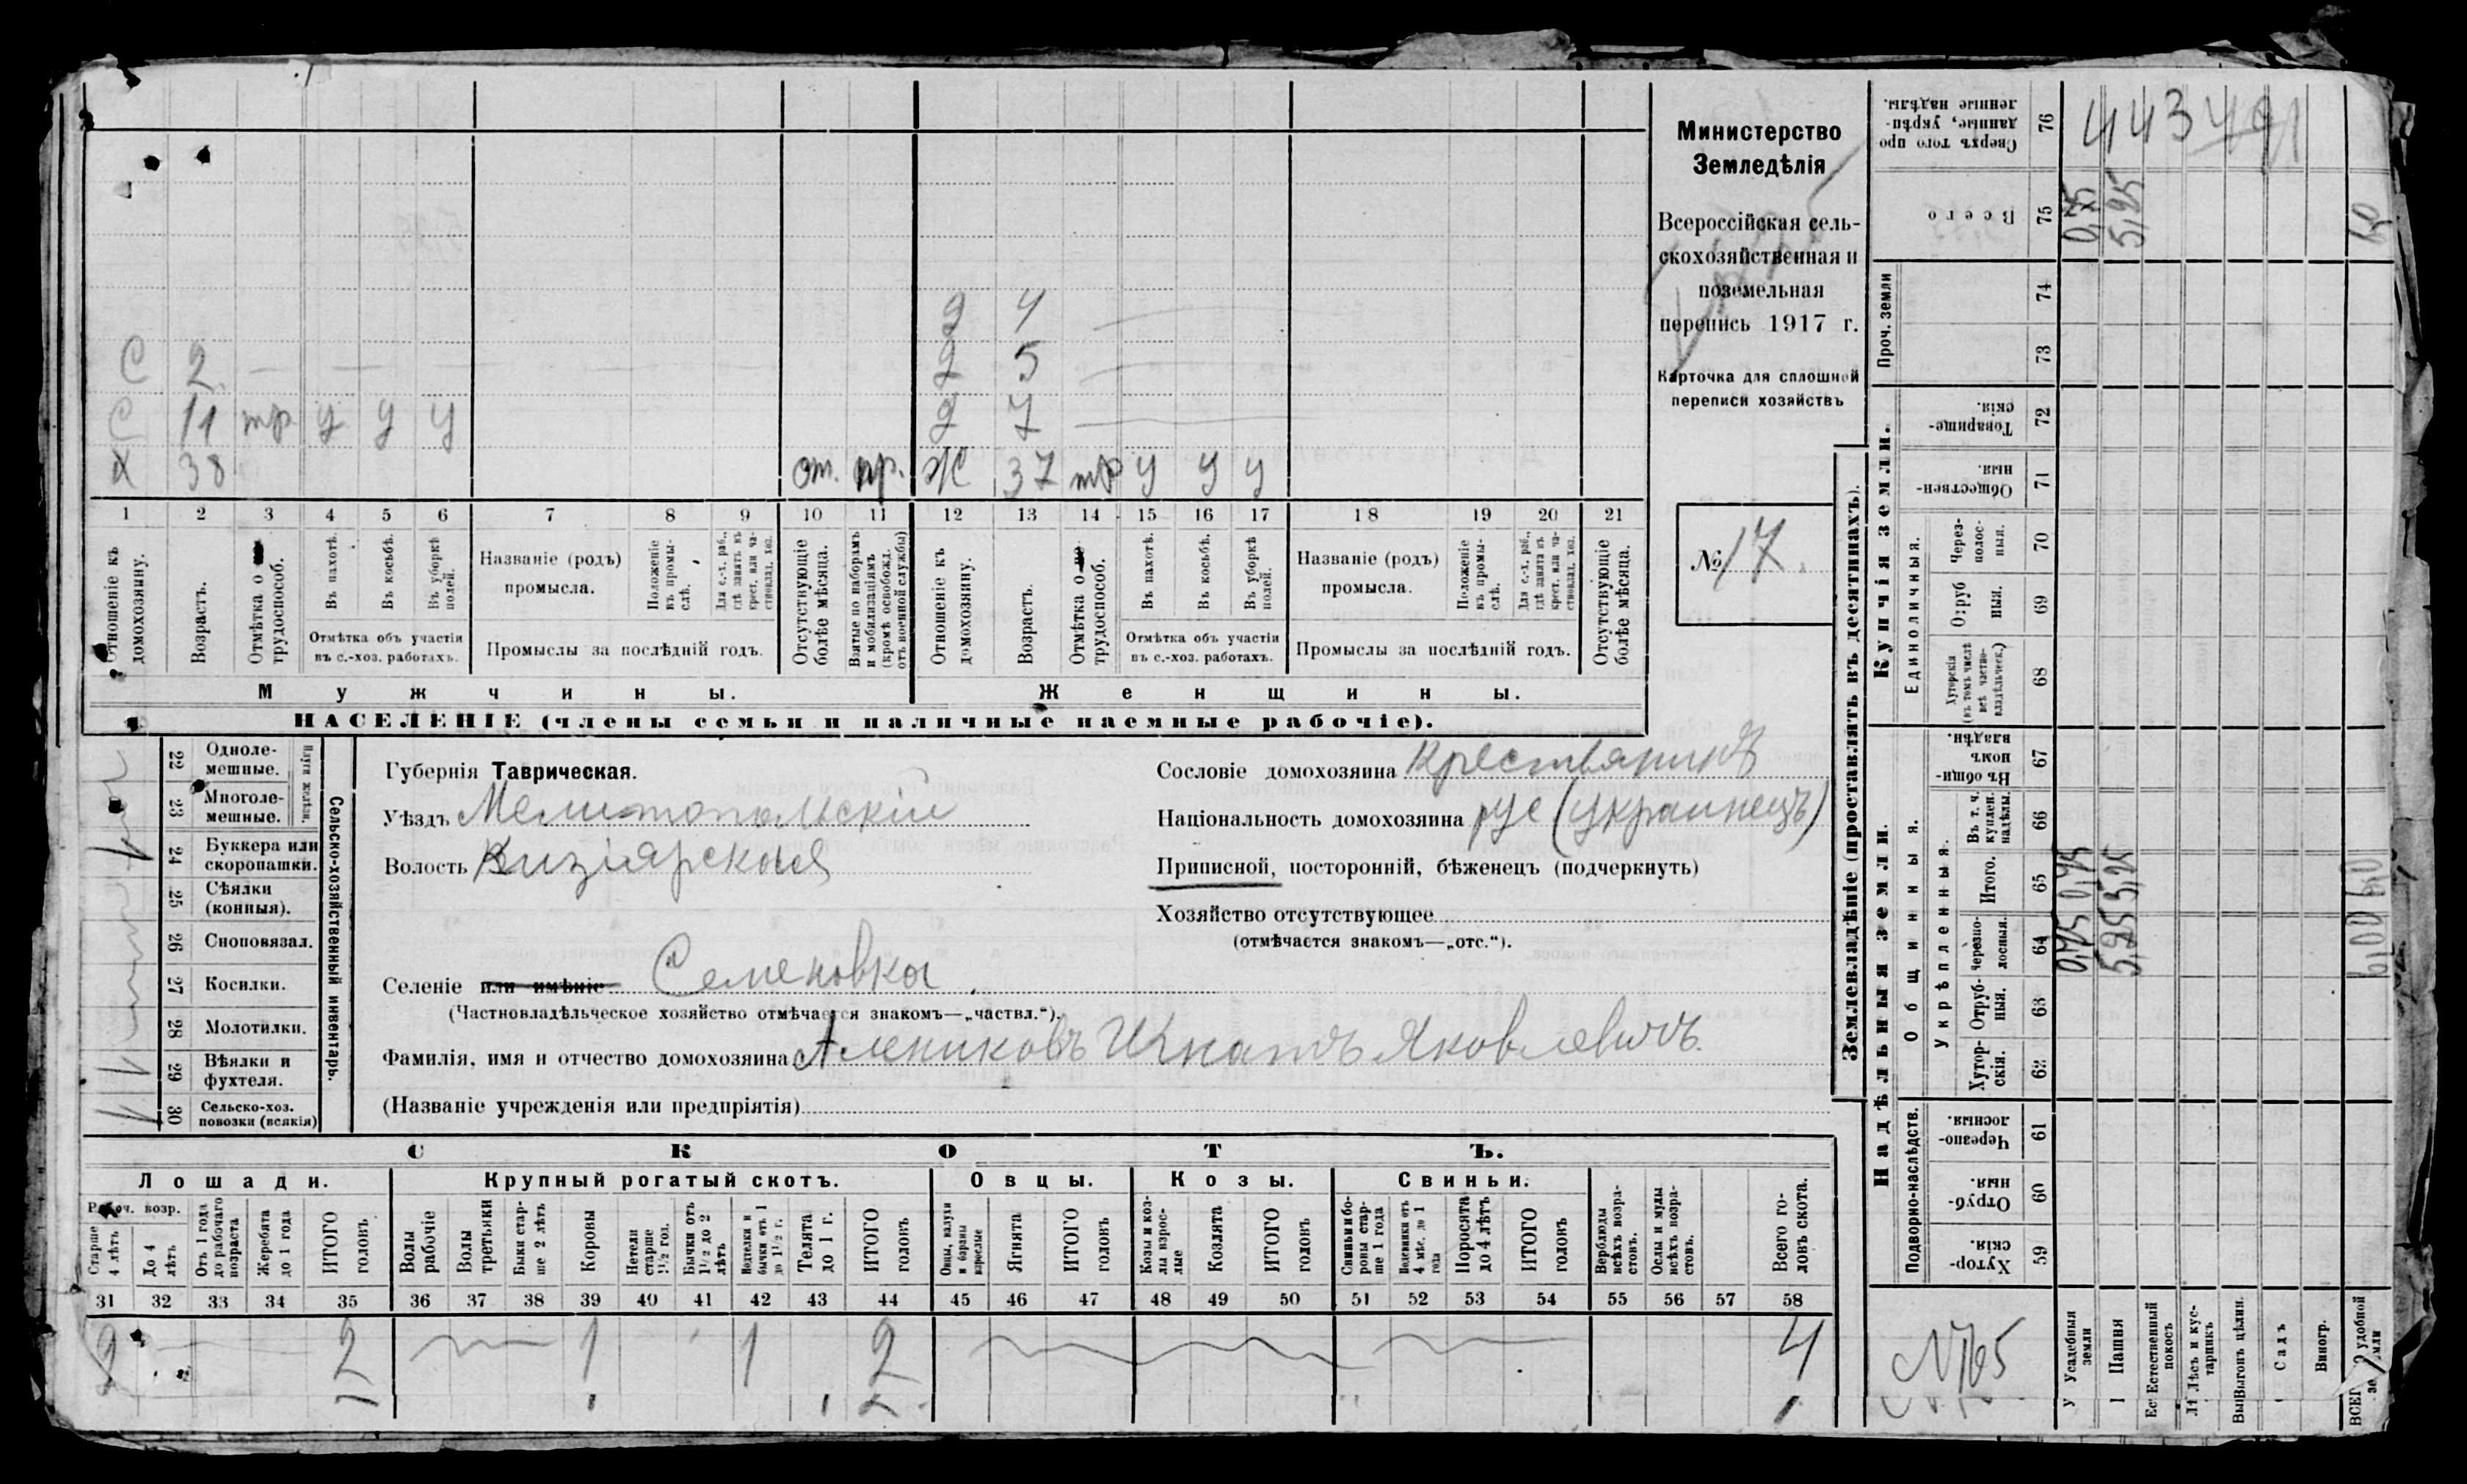 д 4
С 2 д 5
С 11 тр у у у д 7
Х 38 от. пр. Ж 37 тр у у у
1 2 3 4 5 6 7 8 9 10 11 12 13 14 15 16 17 18 19 20 21
Отношеніе къ домохозяину.
Возрастъ.
Отмѣтка о трудоспособ.
Въ пахотѣ.
Въ косьбѣ.
Въ уборкѣ полей.
Отмѣтка объ участіи въ с.-хоз. работахъ.
Названіе (родъ) промысла.
Положеніе въ промыслѣ.
Для с.-х. раб., гдѣ занятъ въ крест. или частновлад. хоз.
Промыслы за послѣдній годъ.
Отсутствующіе болѣе мѣсяца.
Взятые по наборамъ и мобилизаціямъ (кромѣ освобожд. отъ военной службы)
Отношеніе къ домохозяину.
Возрастъ.
Отмѣтка о трудоспособ.
Въ пахотѣ.
Въ косьбѣ.
Въ уборкѣ полей.
Отмѣтка объ участіи въ с.-хоз. работахъ.
Названіе (родъ) промысла.
Положеніе въ промыслѣ.
Для с.-х. раб., гдѣ занятъ въ крест. или частновлад. хоз.
Промыслы за послѣдній годъ.
Отсутствующіе болѣе мѣсяца.
Мужчины. Женщины.
НАСЕЛЕНІЕ (члены семьи и наличные наемные рабочіе).
Министерство
Земледѣлія
Всероссійская сель-
скохозяйственная и
поземельная
перепись 1917 г.
Карточка для сплошной
переписи хозяйствъ
№ 17.
22 Одноле-мешные.
23 Многоле-мешные.
Плуги желѣзн.
24 Буккера или скоропашки.
25 Сѣялки (конныя).
26 Сноповязал.
27 Косилки.
28 Молотилки.
29 Вѣялки и фухтеля.
30 Сельско-хоз. повозки (всякія)
Сельско-хозяйственный инвентарь.
Губернія Таврическая.
Уѣздъ Мелитопольскій
Волость Кизіярская
Сословіе домохозяина крестьянинъ
Національность домохозяина рус (украинецъ)
Приписной, посторонній, бѣженецъ (подчеркнуть)
Хозяйство отсутствующее
(отмѣчается знакомъ—„отс.“).
Селеніе или имѣніе Семеновка
(Частновладѣльческое хозяйство отмѣчается знакомъ—„частвл.“).
Фамилія, имя и отчество домохозяина Алениковъ Игнатъ Яковлевичъ.
(Названіе учрежденія или предпріятія)
СКОТЪ.
Лошади. Крупный рогатый скотъ. Овцы. Козы. Свиньи.
Рабоч. возр.
Старше 4 лѣтъ
До 4 лѣтъ
Отъ 1 года до рабочаго возраста
Жеребята до 1 года
ИТОГО головъ
Волы рабочіе
Волы третьяки
Быки старше 2 лѣтъ
Коровы
Нетели старше 1½ год.
Бычки отъ 1½ до 2 лѣтъ
Нетелки и бычки отъ 1 до 1½ г.
Телята до 1 г.
ИТОГО головъ
Овцы, валухи и бараны взрослые
Ягнята
ИТОГО головъ
Козы и козлы взрослые
Козлята
ИТОГО головъ
Свиньи и боровы старше 1 года
Подсвинки отъ 4 мѣс. до 1 года
Поросята до 4 лѣтъ
ИТОГО головъ
Верблюды всѣхъ возрастовъ.
Ослы и мулы всѣхъ возрастовъ.
Всего головъ скота.
31 32 33 34 35 36 37 38 39 40 41 42 43 44 45 46 47 48 49 50 51 52 53 54 55 56 57 58
2 2 1 1 2 4
Землевладѣніе (проставлять въ десятинахъ).
Купчія земли.
Надѣльныя земли.
Сверхъ того проданные, укрѣпленные надѣлы. 76
Всего 75
Проч. земли 74 73
Товарищескія. 72
Общественныя. 71
Единоличныя.
Черезполосныя. 70
Отрубныя. 69
Хуторскія (въ томъ числѣ всѣ частновладѣльческ.) 68
Общинныя.
Въ общинномъ владѣн. 67
Укрѣпленныя.
Въ т. ч. куплен. надѣлы. 66
Итого. 65
Черезполосныя. 64
Отрубныя. 63
Хуторскія. 62
Подворно-наслѣдств.
Черезполосныя 61
Отрубныя. 60
Хуторскія. 59
Усадебныя земли
Пашня
Естественный покосъ
Лѣсъ и кустарникъ
Выгонъ цѣлин.
Садъ
Виногр.
ВСЕГО удобной земли
44349
0,75 5,25 6,0
0,75 5,25 6,0
0,75 5,25 6,00
№165